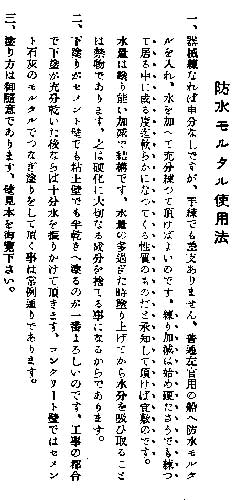 防水モルタル使用法
一、器械練なれば申分なしですが、手練でも差支ありません、普通左官用の船へ防水モルタ
ルを入れ、水を加へて充分捏つて頂けばよいのです。練り加減は始め硬ださうでも捏つ
て居る中に或る度迄軟らかになつてくる性質のものだと承知して頂けば宜敷のです。
水量は塗り能い加減で結構です、水量の多過ぎた時塗り上げてから水分を吸ひ取ること
は禁物であります、之は硬化に大切なる成分を捨てる事になるからであります。
二、下塗りがセメント壁でも粘土壁でも半乾きへ塗るのが一番よろしいのです、工事の都合
で下塗が充分乾いた後ならば十分水を振りかけて頂きます。コンクリート壁ではセメン
ト石灰のモルタルでつなぎ塗りをして頂く事は常例通りであります。
三、塗り方は御随意であります、後見本を御覧下さい。